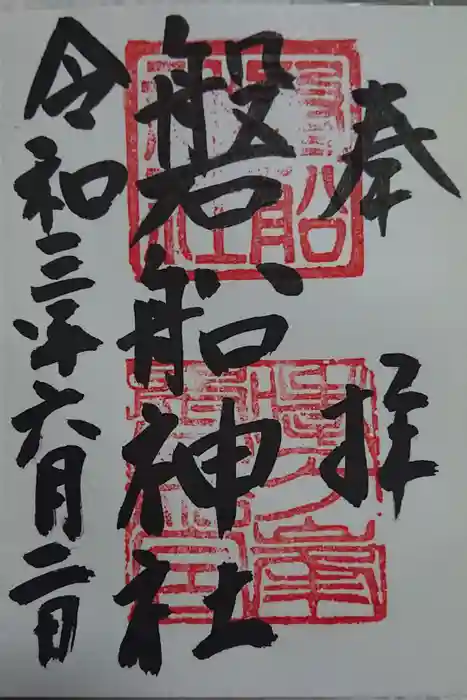 奉拝
磐船神社
令和三年六月二日